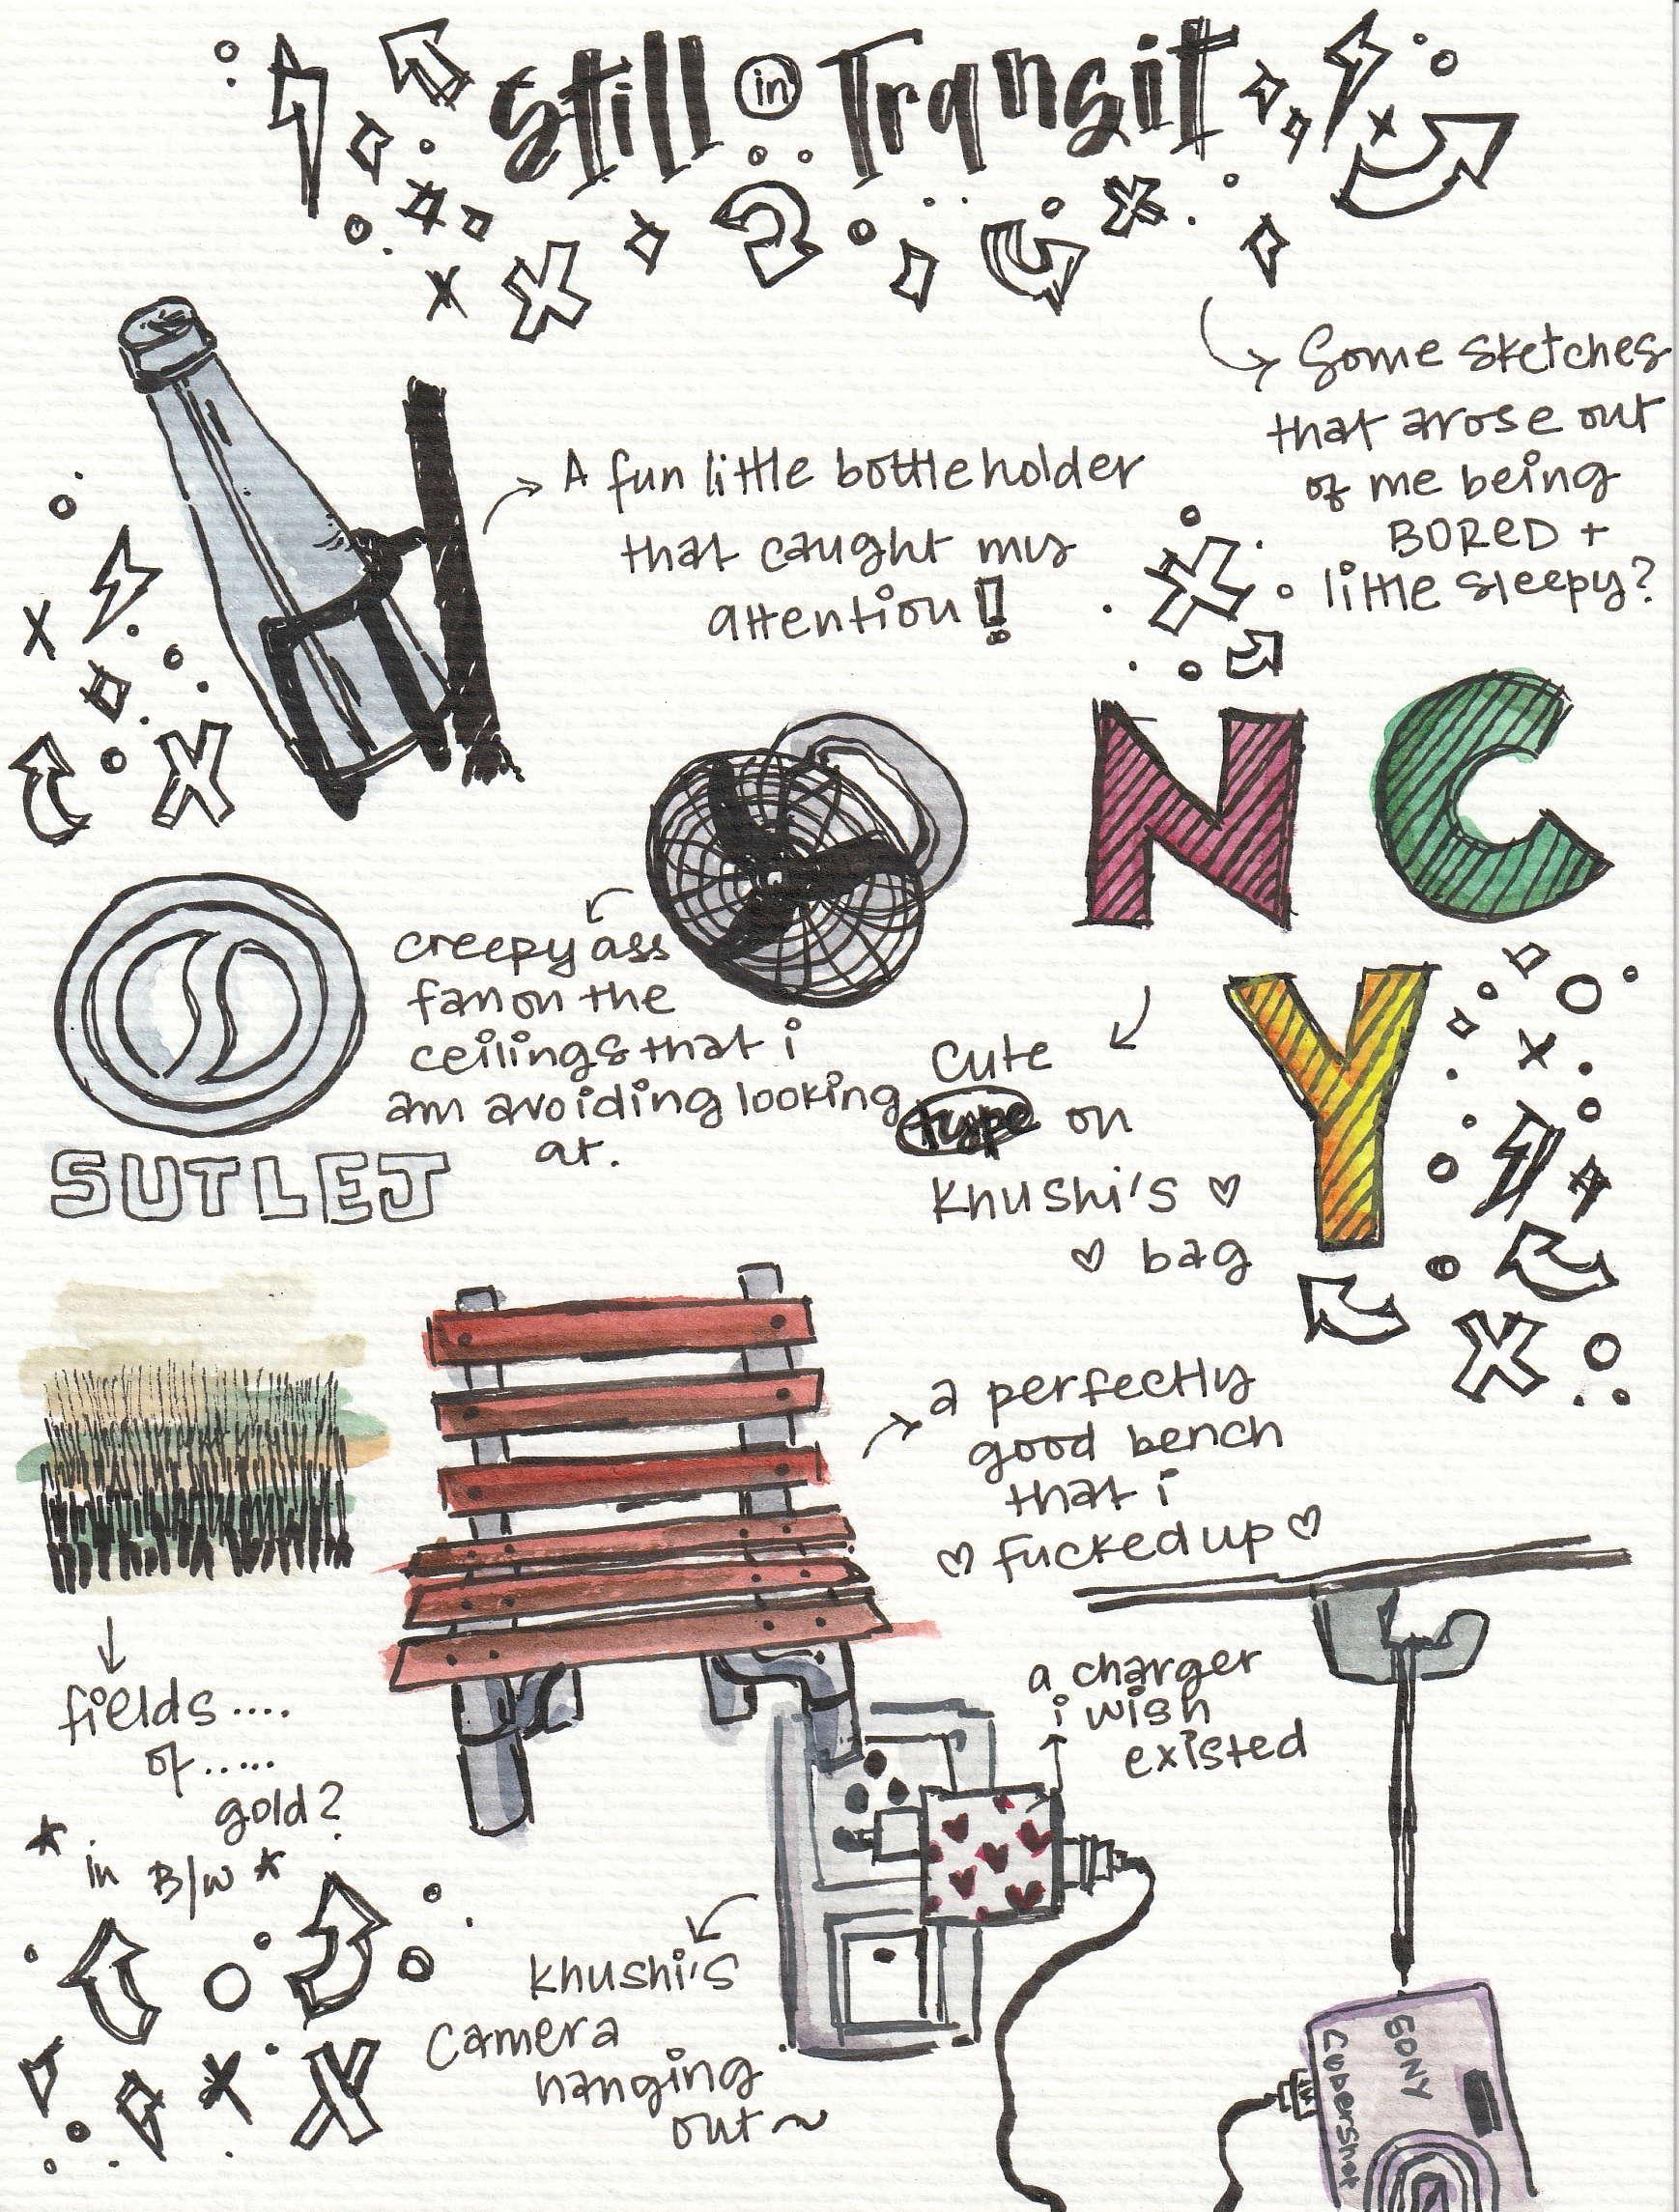 Still in Transit
Some sketches
that arose out
of me being
BORED +
little sleepy?
A fun little bottle holder
that caught my
attention!
N C
Y
creepy ass
fan on the
ceilings that i
am avoiding looking
at.
Cute
type on
Khushi's
bag
SUTLEJ
a perfectly
good bench
that i
fucked up
fields ....
of .....
gold?
* in B/W *
a charger
i wish
existed
Khushi's
camera
hanging
out ~
SONY
Cybershot